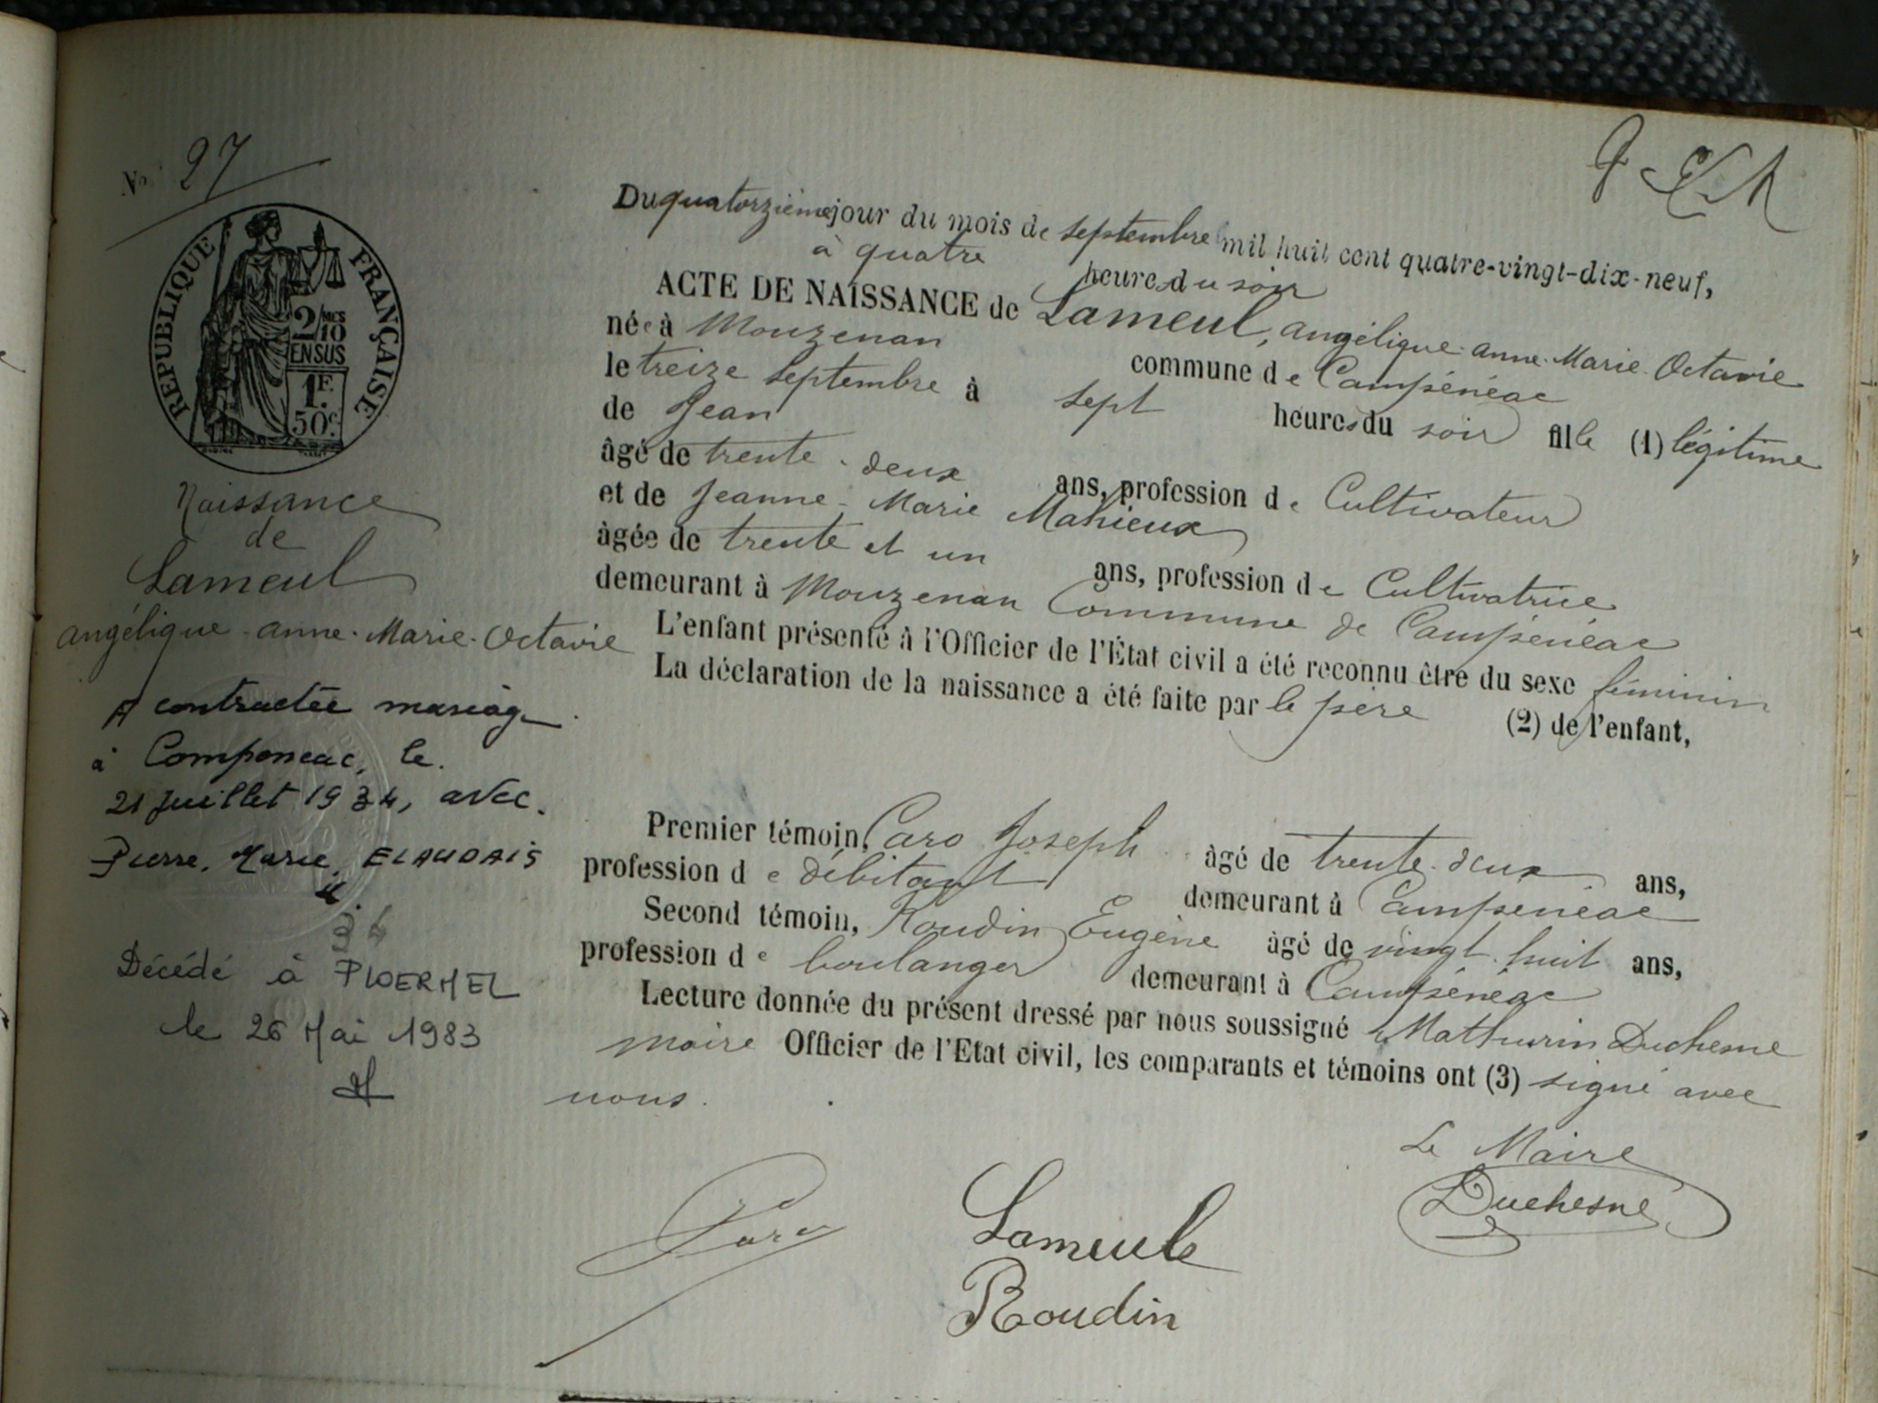 No 27
RÉPUBLIQUE FRANÇAISE
2/10 MES
EN SUS
1F.
50c.
Naissance
de
Lameul
angélique-anne-Marie-Octavie
A contractée mariage
à Campeneac, le
21 juillet 1934, avec
Pierre, Marie, ELAUDAIS
Décédé à PLOERMEL
le 26 Mai 1983
Du quatorzième jour du mois de septembre mil huit cent quatre-vingt-dix-neuf,
à quatre heures du soir
ACTE DE NAISSANCE de Lameul, angélique-anne-Marie-Octavie
née à Mouzenan commune de Campénéac
le treize septembre à sept heures du soir fille (1) légitime
de Jean
âgé de trente-deux ans, profession de Cultivateur
et de Jeanne-Marie Mahieux
âgée de trente et un ans, profession de Cultivatrice
demeurant à Mouzenan Commune de Campénéac
L'enfant présenté à l'Officier de l'État civil a été reconnu être du sexe féminin
La déclaration de la naissance a été faite par le père (2) de l'enfant,
Premier témoin, Caro Joseph âgé de trente-deux ans,
profession de débitant demeurant à Campénéac
Second témoin, Roudin Eugène âgé de vingt-huit ans,
profession de boulanger demeurant à Campénéac
Lecture donnée du présent dressé par nous soussigné Mathurin Duchesne
maire Officier de l'Etat civil, les comparants et témoins ont (3) signé avec
nous.
Le Maire
Duchesne
Caro
Lameule
Roudin